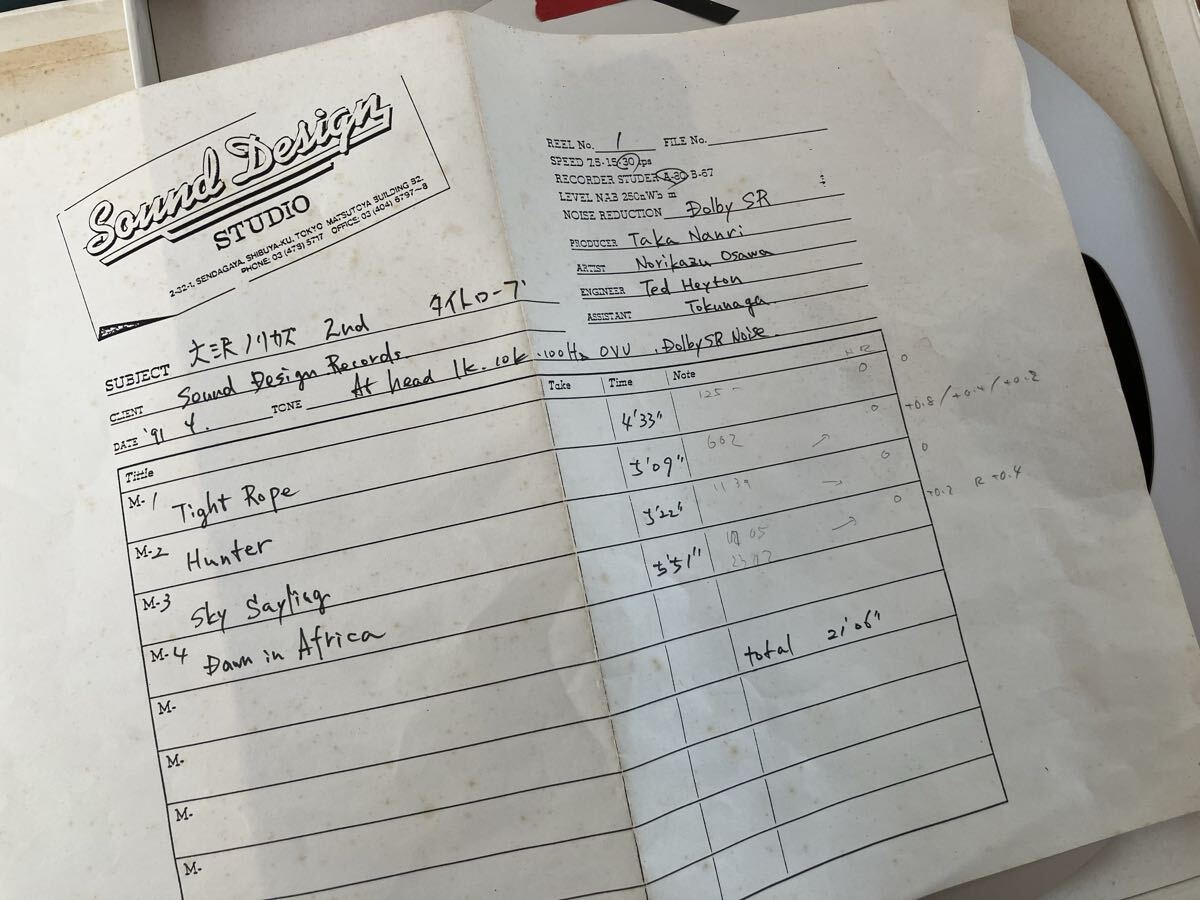 Sound Design
STUDIO
2-32-1, SENDAGAYA, SHIBUYA-KU, TOKYO MATSUTOYA BUILDING B2.
PHONE: 03 (479) 5717 OFFICE: 03 (404) 6797~8
REEL No. 1 FILE No.
SPEED 7.5·15·30 ips
RECORDER STUDER A-80 B-67
LEVEL NAB 250nWb m
NOISE REDUCTION Dolby SR
PRODUCER Taka Nanri
ARTIST Norikazu Osawa
ENGINEER Ted Heyton
ASSISTANT Tokunaga
SUBJECT 大沢ノリカズ 2nd タイトロープ
CLIENT Sound Design Records
DATE '91 4. TONE At head 1k. 10k. 100Hz 0VU. Dolby SR Noise
Tittle Take Time Note
M-1 Tight Rope 4'33" 125 0 0
M-2 Hunter 5'09" 602 → 0 +0.8 / +0.4 / +0.2
M-3 Sky Sayling 5'22" 1139 → 0 0
M-4 Dawn in Africa 5'51" → 0 +0.2 R +0.4
M- total 21'06"
M-
M-
M-